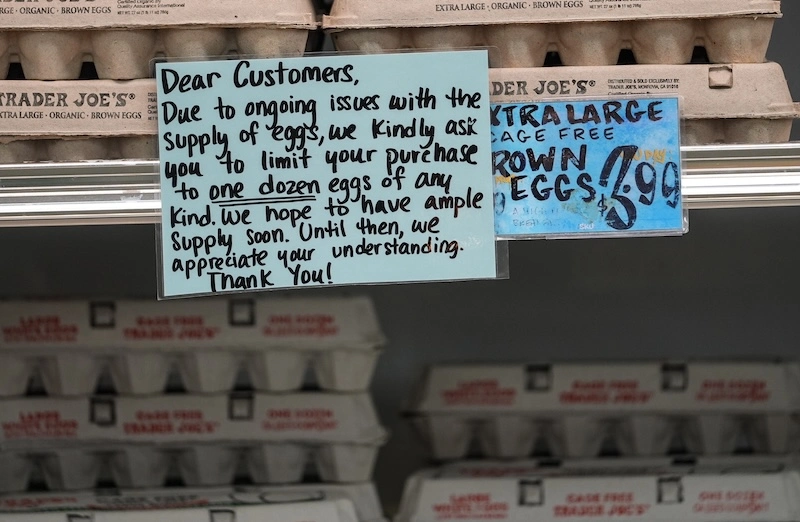 EXTRA LARGE · ORGANIC · BROWN EGGS
TRADER JOE'S®
EXTRA LARGE · ORGANIC · BROWN EGGS
Dear Customers,
Due to ongoing issues with the
supply of eggs, we kindly ask
you to limit your purchase
to one dozen eggs of any
kind. We hope to have ample
supply soon. Until then, we
appreciate your understanding.
Thank You!
DER JOE'S®
DISTRIBUTED & SOLD EXCLUSIVELY BY
TRADER JOE'S, MONROVIA, CA 91016
XTRA LARGE
CAGE FREE
ROWN
EGGS
only
$3.99
SKU
LARGE CAGE FREE ONE DOZEN
WHITE EGGS TRADER JOE'S
LARGE CAGE FREE ONE DOZEN
TRADER JOE'S
LARGE CAGE FREE ONE DOZEN
WHITE EGGS TRADER JOE'S
LARGE CAGE FREE ONE DOZEN
TRADER JOE'S